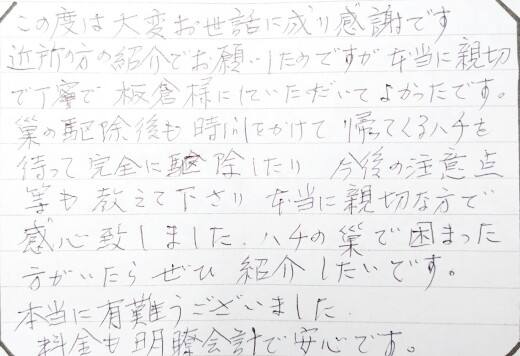 この度は大変お世話に成り感謝です
近所の方の紹介でお願いしたのですが本当に親切
で丁寧で板倉様にしていただいてよかったです。
巣の駆除後も時間をかけて帰ってくるハチを
待って完全に駆除したり今後の注意点
等も教えて下さり本当に親切な方で
感心致しました.ハチの巣で困まった
方がいたらぜひ紹介したいです。
本当に有難うございました.
料金も明瞭会計で安心です。